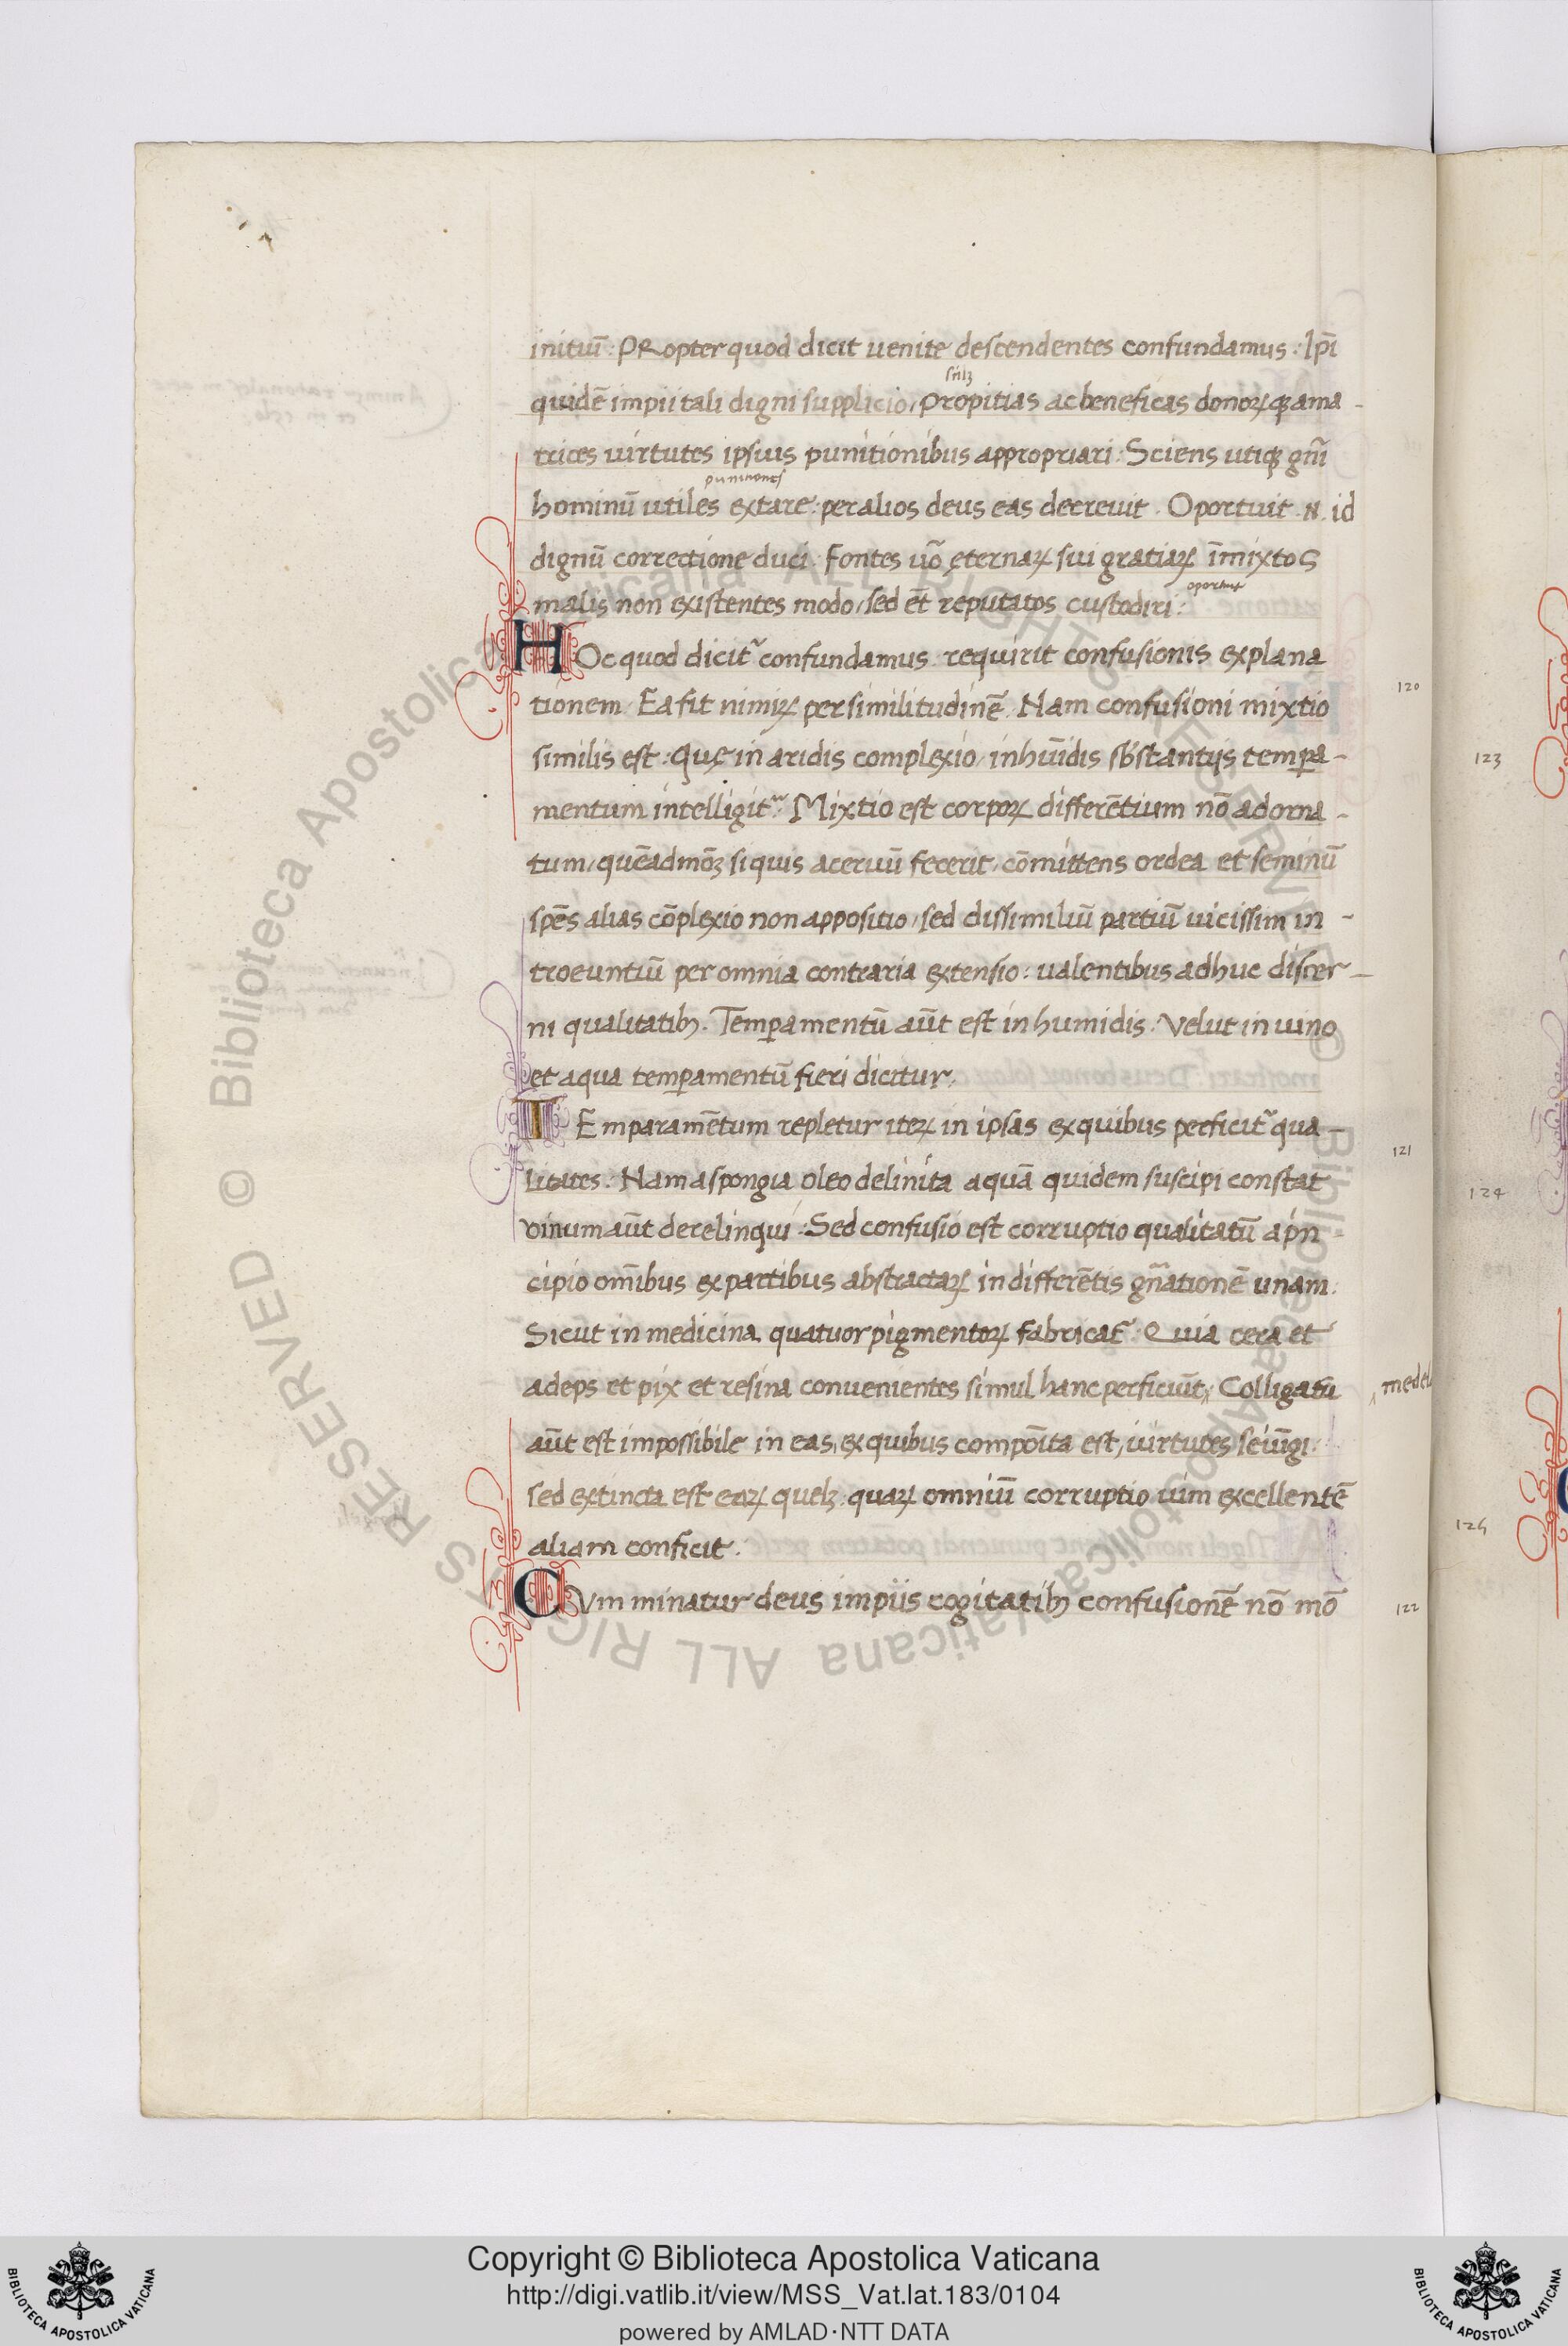 initiuū: PRopter quod dicit uenite descendentes confundamus: Ipī
silꝫ
quidē impii tali digni supplicio, propitias ac beneficas donoꝝqꝫ ama-
trices uirtutes ipsius punitionibus appropriari: Sciens utiqꝫ gn̄i
punitiones
hominū utiles extare: per alios deus eas decreuit. Oportuit .N. id
dignū correctione duci. Fontes uo᷒ ęternaꝝ sui gratiaꝝ īmixtos
oportuit
malis non existentes modo, sed et̄ reputatos custodiri:
HOc quod dicit᷒ confundamus requirit confusionis explana
tionem. Ea fit nimiꝝ per similitudinē. Nam confusioni mixtio
120
similis est: quę in aridis complexio, in hūidis sb̄stantijs tempa-
mentum intelligit᷒. Mixtio est corpoꝝ differētium nō adorna-
tum, quēadmōꝫ si quis aceruū fecerit, cōmittens ordea et seminū
spēs alias cōplexio non appositio, sed dissimiliū partiū uicissim in-
troeuntiū per omnia contraria extensio: ualentibus adhuc discer-
ni qualitatibꝫ. Temꝑamentū aūt est in humidis: Velut in uino
et aqua temꝑamentū fieri dicitur.
TEmparamētum repletur iteꝝ in ipsas ex quibus perficit᷒ qua-
121
litates: Nam a spongia oleo delinita aquā quidem suscipi constat
vinum aūt derelinqui: Sed confusio est corruptio qualitatū a pn̄-
cipio om̄ibus ex partibus abstractaꝝ in differētis gn̄ationē unam.
Sicut in medicina quatuor pigmentoꝝ fabricat᷒: Quia cera et
adeps et pix et resina conuenientes simul hanc perficiūt, Colligatū
medel
aūt est impossibile in eas, ex quibus compoīta est, uirtutes seiūgi:
sed extincta est eaꝝ quelꝫ: quaꝝ omniū corruptio uim excellentē
aliam conficit.
CVm minatur deus impiis cogitatibꝫ confusionē nō mō
122
123
124
Copyright © Biblioteca Apostolica Vaticana
http://digi.vatlib.it/view/MSS_Vat.lat.183/0104
powered by AMLAD·NTT DATA
BIBLIOTECA APOSTOLICA VATICANA
BIBLIOTECA APOSTOLICA VATICANA
© Biblioteca Apostolica Vaticana ALL RIGHTS RESERVED